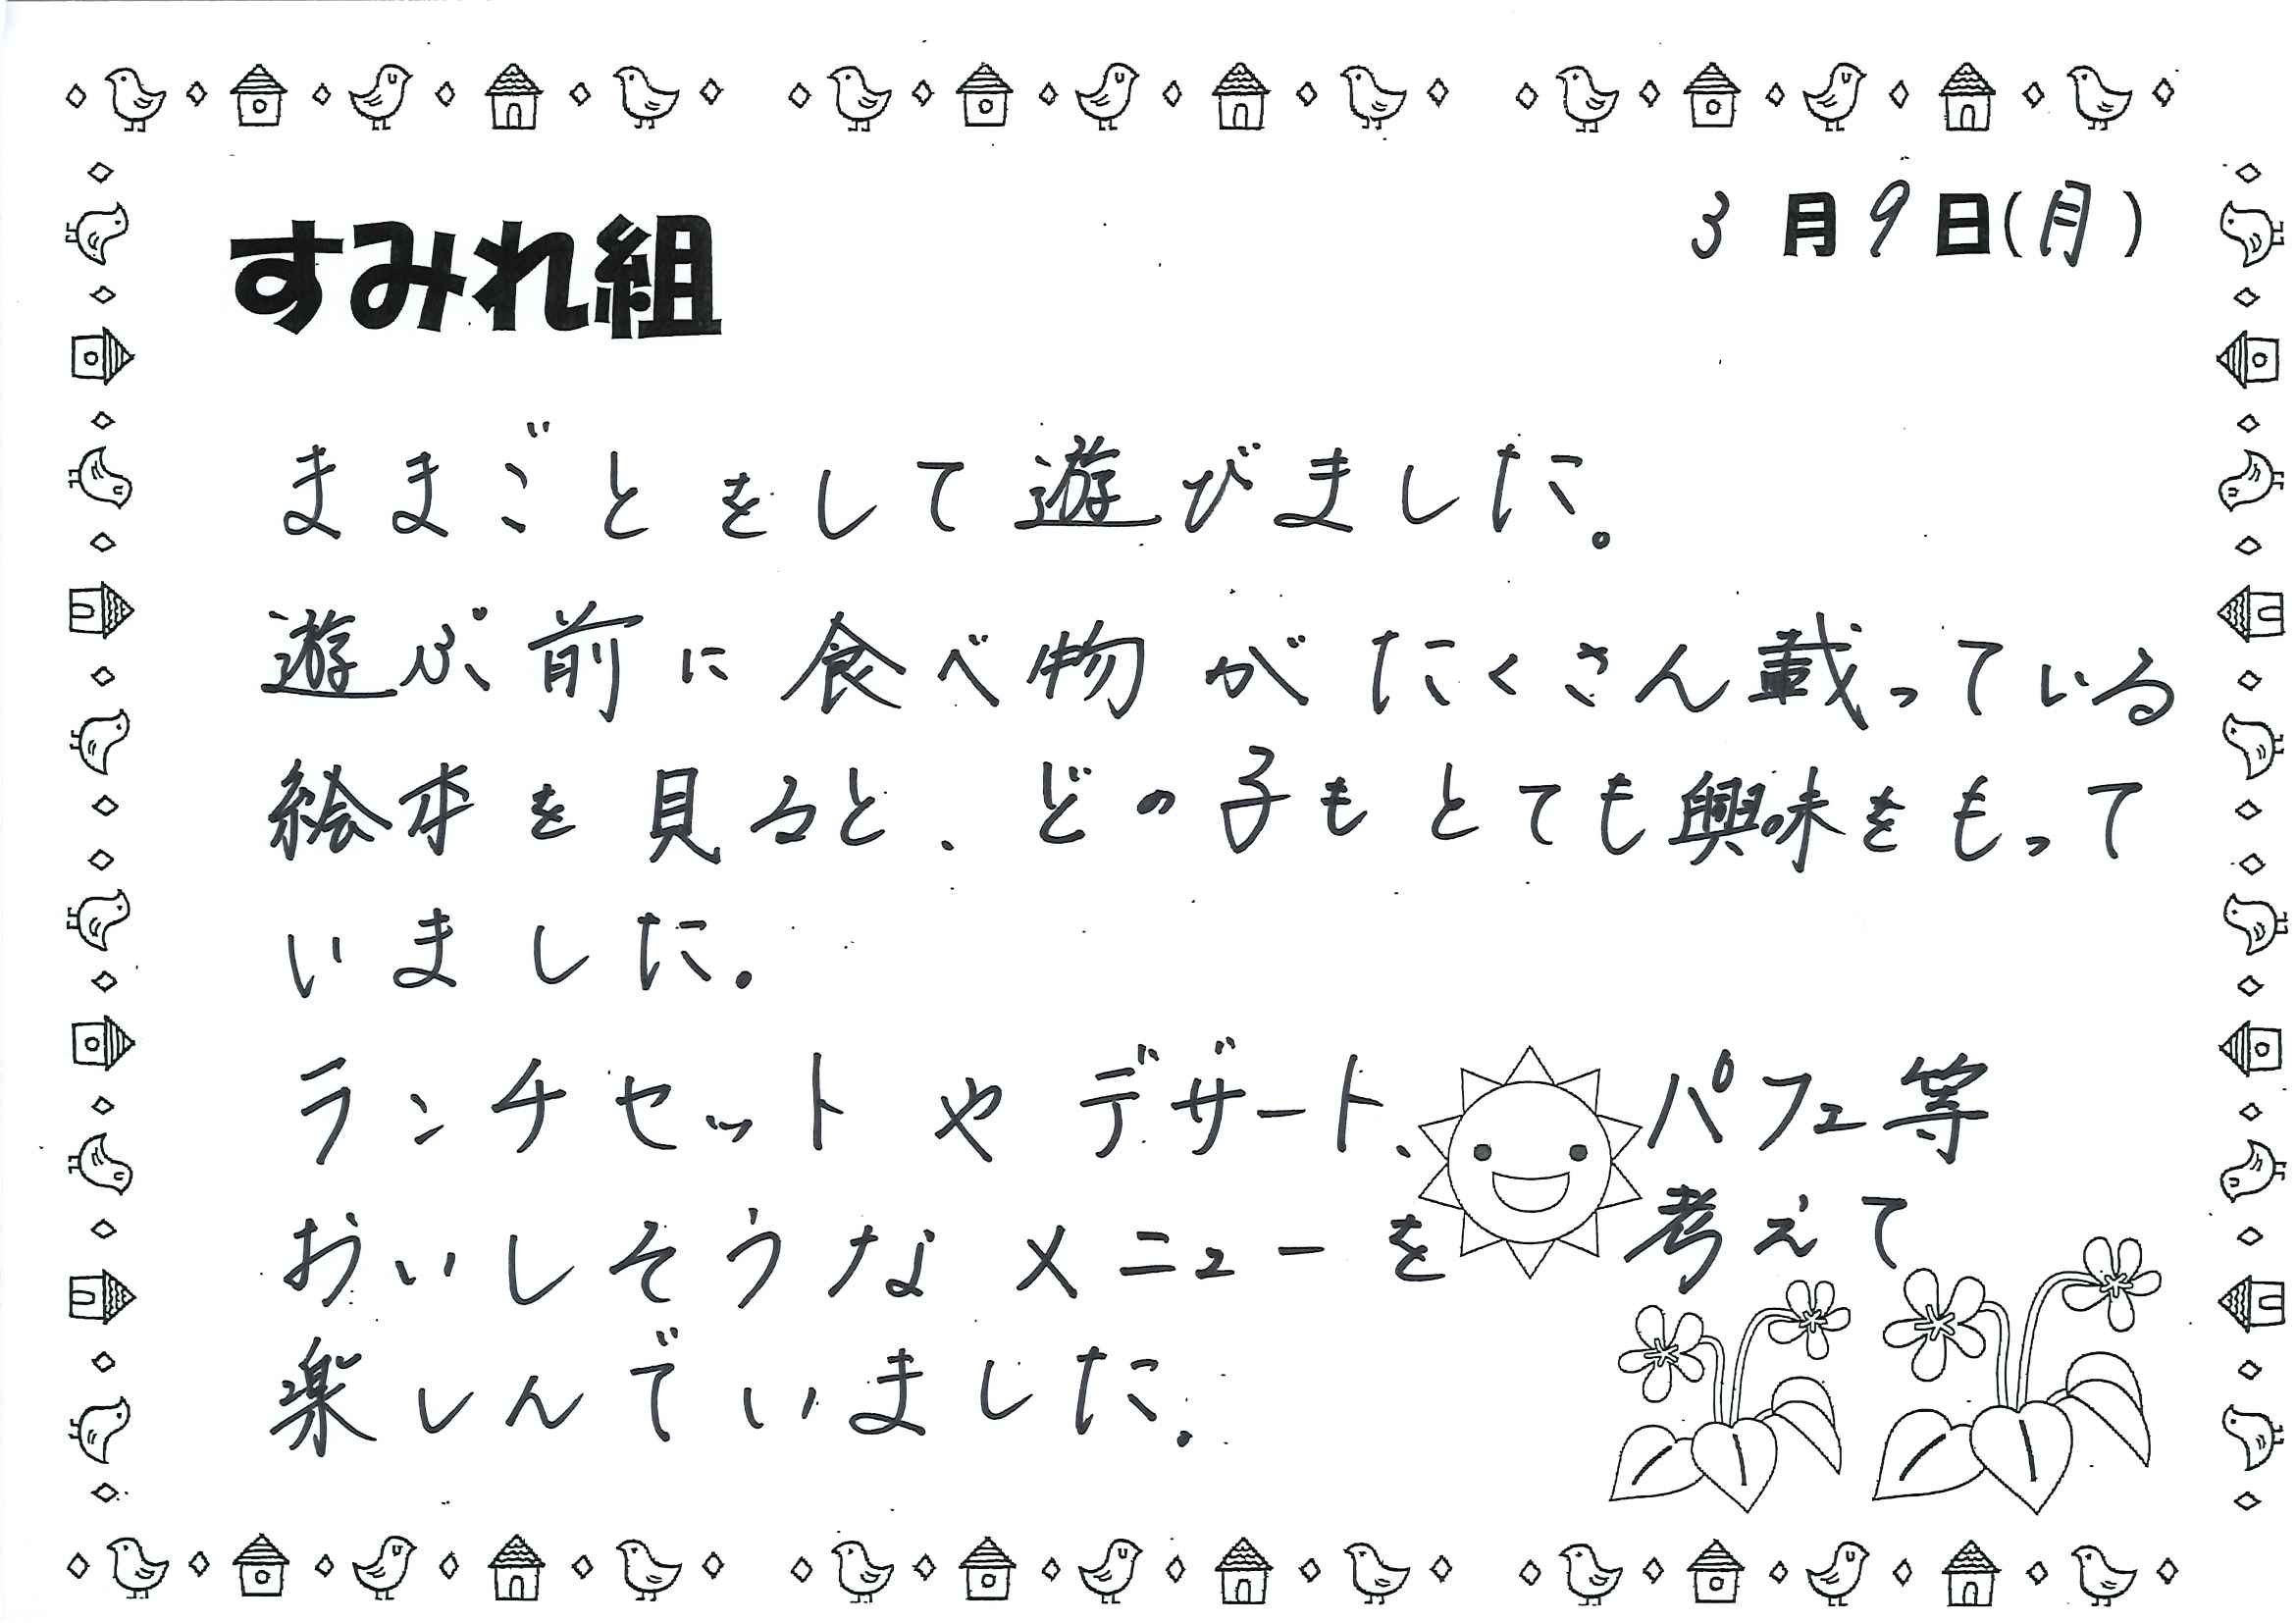 3月9日(月)
すみれ組
ままごとをして遊びました。
遊ぶ前に食べ物がたくさん載っている
絵本を見ると、どの子もとても興味をもって
いました。
ランチセットやデザート、パフェ等
おいしそうなメニューを考えて
楽しんでいました。